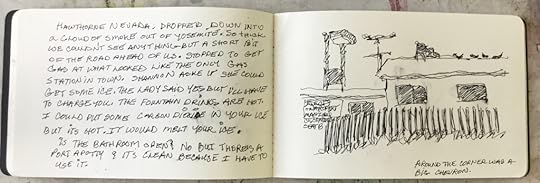 HAWTHORNE NEVADA. DROPPED DOWN INTO
A CLOUD OF SMOKE OUT OF YOSEMITE. SO THICK
WE COULDN'T SEE ANYTHING BUT A SHORT BIT
OF THE ROAD AHEAD OF US. STOPPED TO GET
GAS AT WHAT LOOKED LIKE THE ONLY GAS
STATION IN TOWN. SHANNON ASKED IF SHE COULD
GET SOME ICE. THE LADY SAID YES BUT I'LL HAVE
TO CHARGE YOU. THE FOUNTAIN DRINKS ARE HOT.
I COULD PUT SOME CARBON DIOXIDE IN YOUR ICE
BUT IT'S HOT. IT WOULD MELT YOUR ICE.
IS THE BATHROOM OPEN? NO BUT THERE'S A
PORT A POTTY & IT'S CLEAN BECAUSE I HAVE TO
USE IT.
AROUND THE CORNER WAS A
BIG CHEVRON.